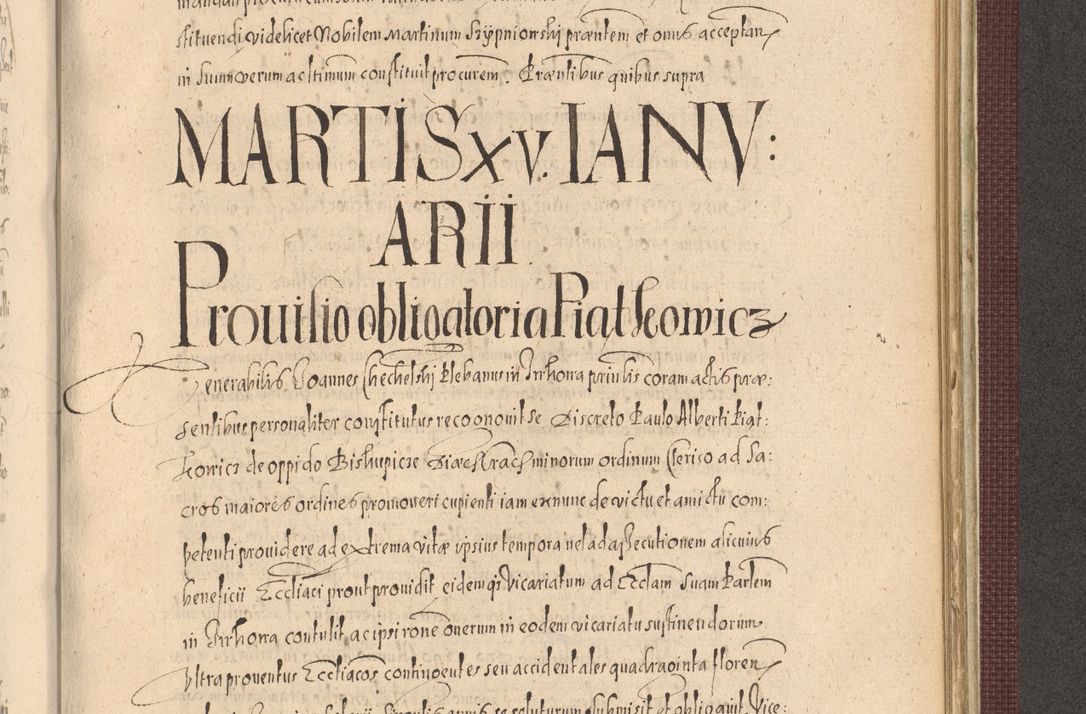 stituendi videlicet Nobilem Martinum Szypniowski præntem et onus acceptan
in suum verum ac ltimum constituit procurem. Præntibus quibus supra
MARTIS XV. IANV:
ARII.
Prouisio obligatoria Piątkowicz
Venerabilis Joannes Chechelski Plebanus in Irrhowa priutis coram actis præ:
sentibus personaliter constitutus recognovit se Discreto Paulo Alberti Piąt:
kowicz de oppido Biskupicze Diæc Crac minorum ordinum Clerico ad Sa:
cros maiores ordines promoveri cupienti iam ex nunc de victu et amictu com:
petenti providere ad extrema vitæ ipsius tempora vel ad assecutionem alicuius
beneficii Ecctiaci prout providit eidemqȝ Vicariatum ad Ecclam suam Parlem
in Irrhowa contulit ac ipsi rone onerum in eodem vicariatu sustinendorum
Vltra proventus Ecctiacos contingentes seu accidentales quadraginta floren
singulis annis se soluturum submisit et obligavit. Vice: